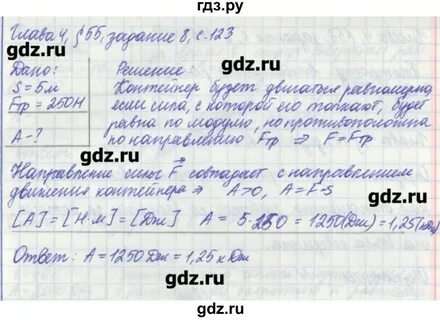 гдз.ру
Глава 4, § 55, задание 8, с. 123
gdz.ru gdz.ru
Дано: Решение:
S = 5м Контейнер будет двигаться равномерно,
Fтр = 250Н если сила, с которой его толкают, будет
gdz.ru gdz.ru
равна по модулю, но противоположна
A - ? по направлению Fтр ⇒ F = Fтр
gdz.ru gdz.ru
Направление силы F⃗ совпадает с направлением
движения контейнера ⇒ A>0, A = F·S
gdz.ru gdz.ru
[A] = [Н·м] = [Дж] A = 5·250 = 1250(Дж) = 1,25(кДж)
gdz.ru gdz.ru
Ответ: A = 1250 Дж = 1,25 кДж
gdz.ru